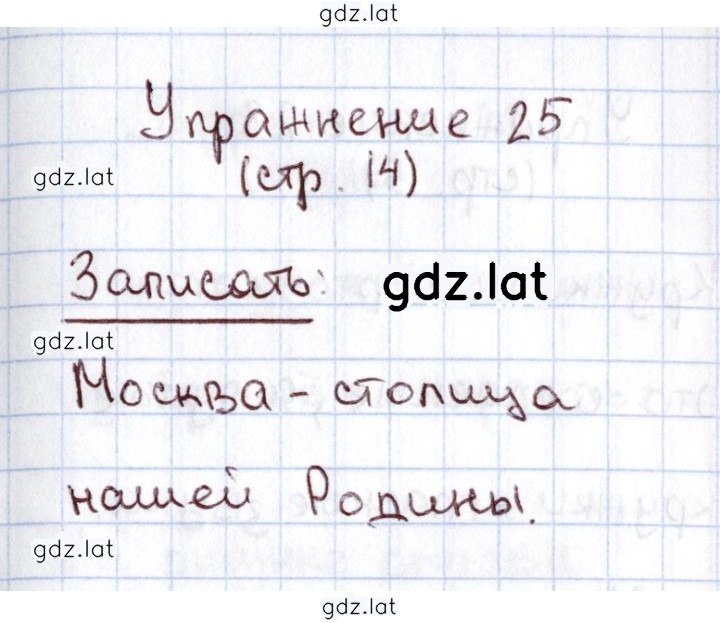 gdz.lat
Упражнение 25
(стр. 14)
gdz.lat
Записать:
gdz.lat
gdz.lat
Москва - столица
нашей Родины.
gdz.lat
gdz.lat